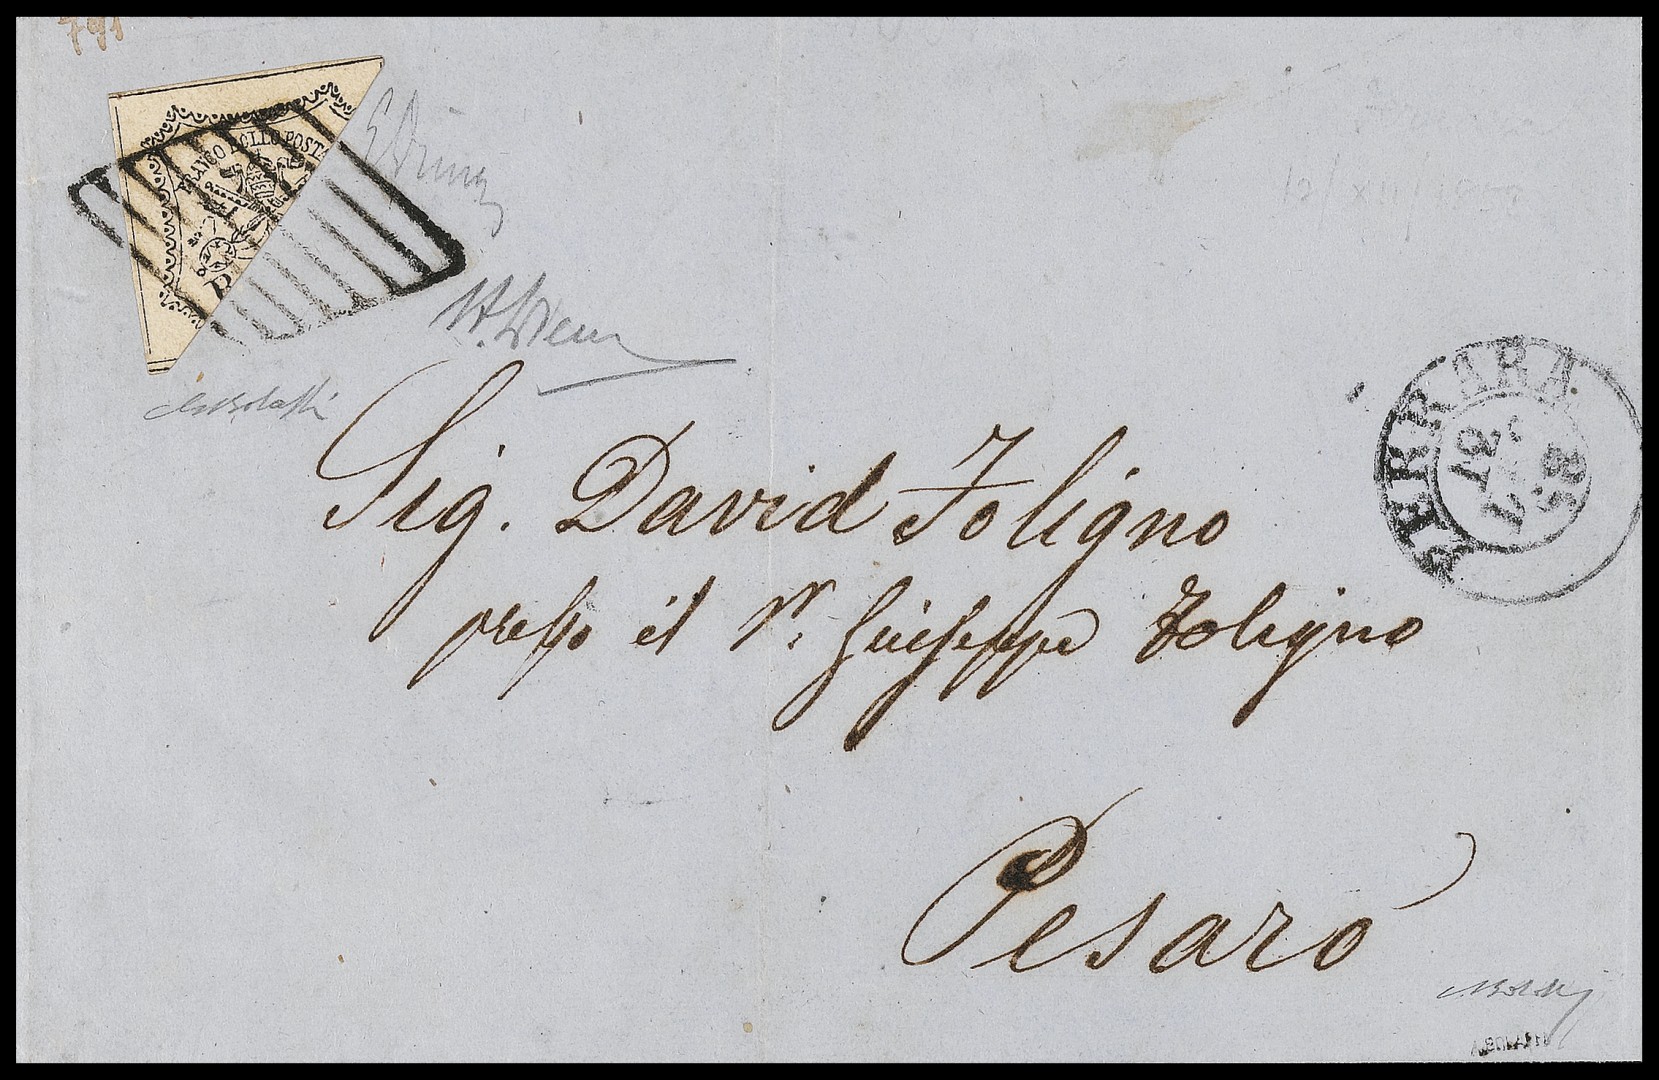 791
FRANCO BOLLO POST
B
E Diena
A. Diena
A Bolaffi
12/XII/1857
FERRARA
12
58
Sig. David Foligno
presso il Sr. Giuseppe Foligno
Pesaro
A. BOLAFFI